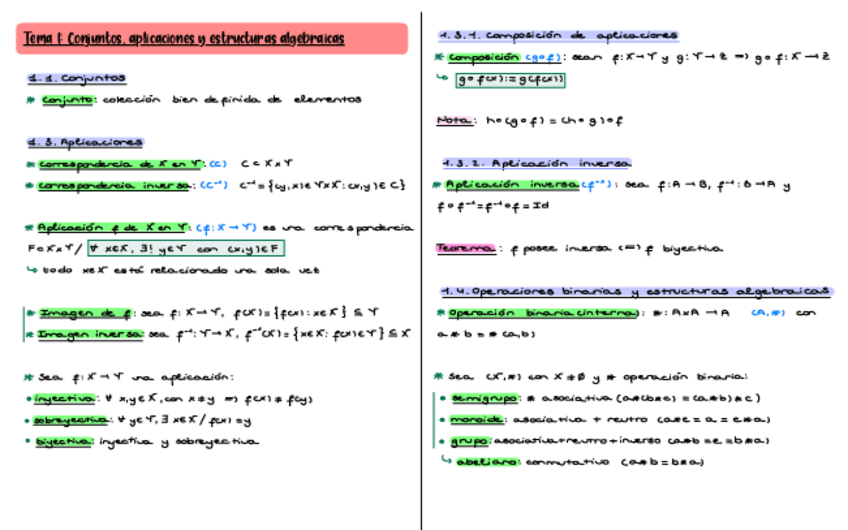 Tema 1: Conjuntos, aplicaciones y estructuras algebraicas
1.1. Conjuntos
* Conjunto: colección bien definida de elementos
1.3. Aplicaciones
* correspondencia de X en Y: (C) C ⊂ X x Y
* correspondencia inversa: (C⁻¹) C⁻¹ = {(y,x) ∈ Y x X : (x,y) ∈ C}
* Aplicación f de X en Y: (f: X → Y) es una correspondencia
F ⊂ X x Y / ∀ x ∈ X, ∃! y ∈ Y con (x,y) ∈ F
↳ todo x ∈ X está relacionado una sola vez
* Imagen de f: sea f: X → Y, f(X) = {f(x) : x ∈ X} ⊆ Y
* Imagen inversa: sea f⁻¹: Y → X, f⁻¹(X) = {x ∈ X : f(x) ∈ Y} ⊆ X
* Sea f: X → Y una aplicación:
• inyectiva: ∀ x,y ∈ X, con x ≠ y ⇒ f(x) ≠ f(y)
• sobreyectiva: ∀ y ∈ Y, ∃ x ∈ X / f(x) = y
• biyectiva: inyectiva y sobreyectiva
1.3.1. Composición de aplicaciones
* Composición (g∘f): sean f: X → Y y g: Y → Z ⇒ g∘f: X → Z
↳ g∘f(x) := g(f(x))
Nota: h∘(g∘f) = (h∘g)∘f
1.3.2. Aplicación inversa
* Aplicación inversa (f⁻¹): sea f: A → B, f⁻¹: B → A y
f∘f⁻¹ = f⁻¹∘f = Id
Teorema: f posee inversa ⟺ f biyectiva
1.4. Operaciones binarias y estructuras algebraicas
* Operación binaria (interna): *: A x A → A (A,*) con
a * b = * (a,b)
* Sea (X,*) con X ≠ ∅ y * operación binaria:
• semigrupo: * asociativa (a*(b*c) = (a*b)*c)
• monoide: asociativa + neutro (a*e = a = e*a)
• grupo: asociativa + neutro + inverso (a*b = e = b*a)
↳ abeliano: conmutativo (a*b = b*a)